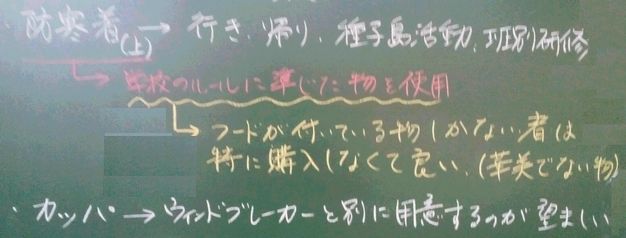 ・防寒着(上)→ 行き、帰り、種子島活動、班別研修
↳ 学校のルールに準じた物を使用
↳ フードが付いている物しかない者は
特に購入しなくて良い、(華美でない物)
・カッパ → ウィンドブレーカーと別に用意するのが望ましい